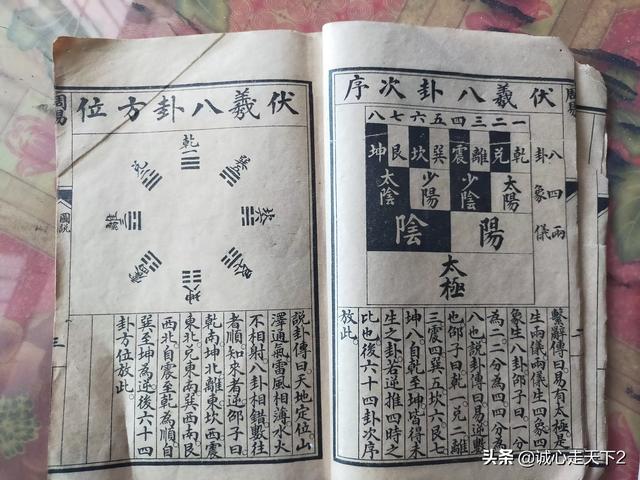 周易
伏羲八卦次序
一二三四五六七八
八卦
乾兌離震巽坎艮坤
四象
太陽
少陰
少陽
太陰
兩儀
陽
陰
太極
繫辭傳曰易有太極是
生兩儀兩儀生四象四
象生八卦邵子曰一分
為二二分為四四分為
八也說卦傳曰易逆數
也邵子曰乾一兌二離
三震四巽五坎六艮七
坤八自乾至坤皆得未
生之卦若逆推四時之
比也後六十四卦次序
放此
伏羲八卦方位
乾
兌
巽
離
坎
震
艮
坤
說卦傳曰天地定位山
澤通氣雷風相薄水火
不相射八卦相錯數往
者順知來者逆邵子曰
乾南坤北離東坎西震
東北兌東南巽西南艮
西北自震至乾為順自
巽至坤為逆後六十四
卦方位放此
周易
圖說
三
头条 @诚心走天下2